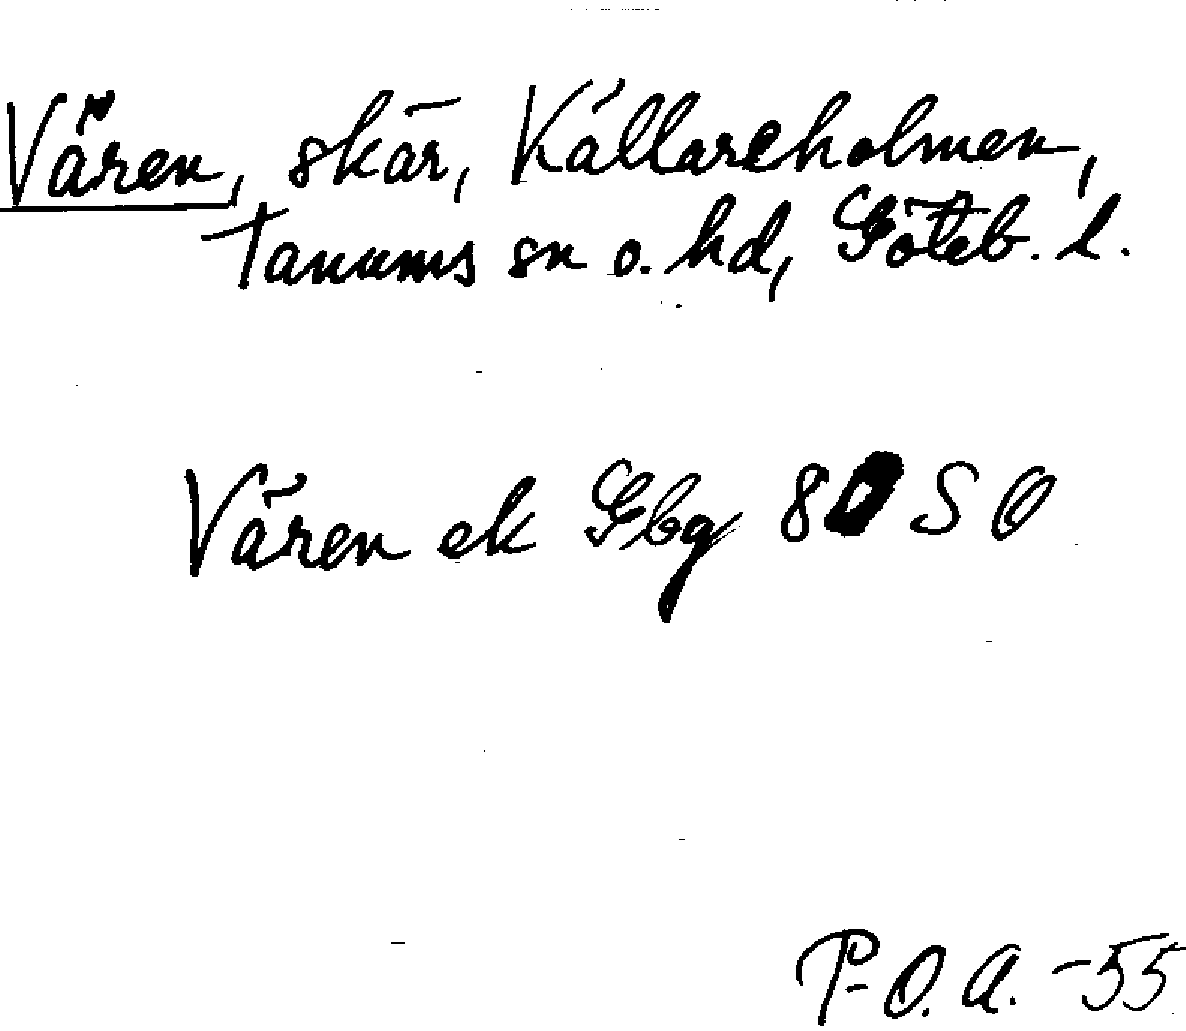 Vären, skär, Källareholmen,
Tanums sn o. hd, Göteb. l.
Vären ek Gbg 80 SO
P-O. A. -55